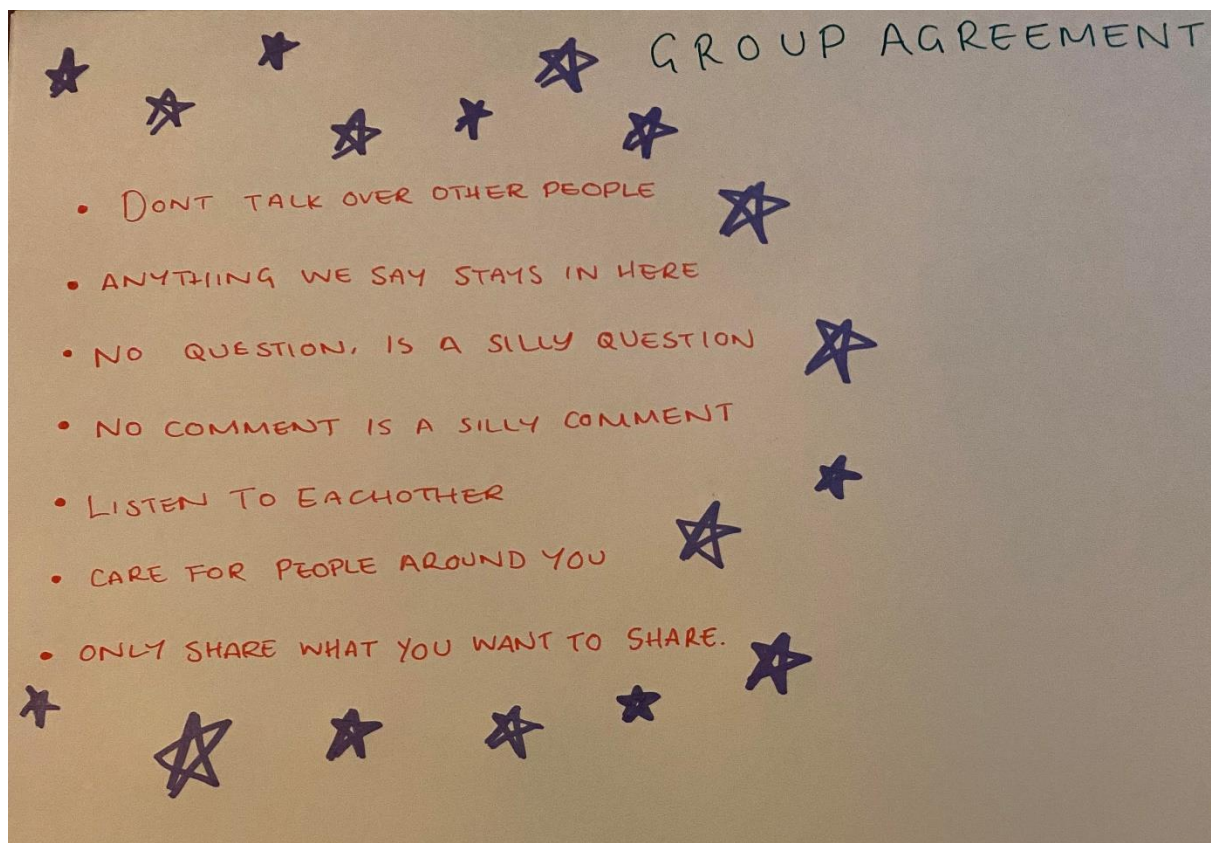 GROUP AGREEMENT
• DONT TALK OVER OTHER PEOPLE
• ANYTHING WE SAY STAYS IN HERE
• NO QUESTION, IS A SILLY QUESTION
• NO COMMENT IS A SILLY COMMENT
• LISTEN TO EACHOTHER
• CARE FOR PEOPLE AROUND YOU
• ONLY SHARE WHAT YOU WANT TO SHARE.